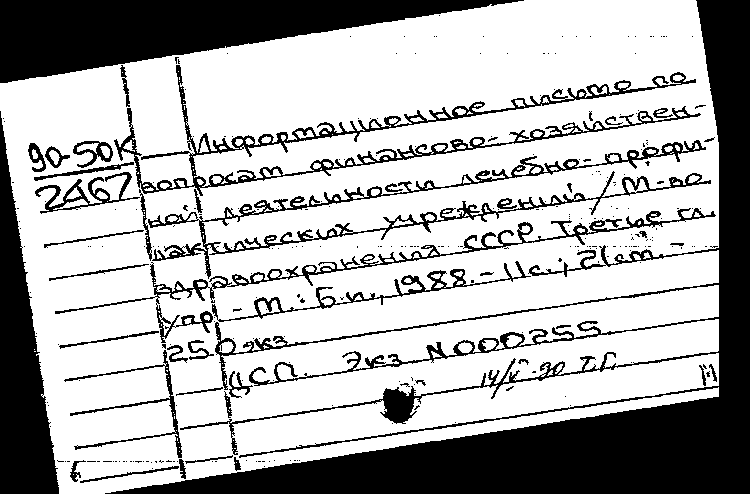 90-50К
2467
Информационное письмо по
вопросам финансово-хозяйствен-
ной деятельности лечебно-профи-
лактических учреждений / М-во
здравоохранения СССР. Третье гл.
упр. - М.: Б.и., 1988. - 11с.; 21см. -
250экз.
ДСП. Экз N000255.
14/V-90 Т.Г.